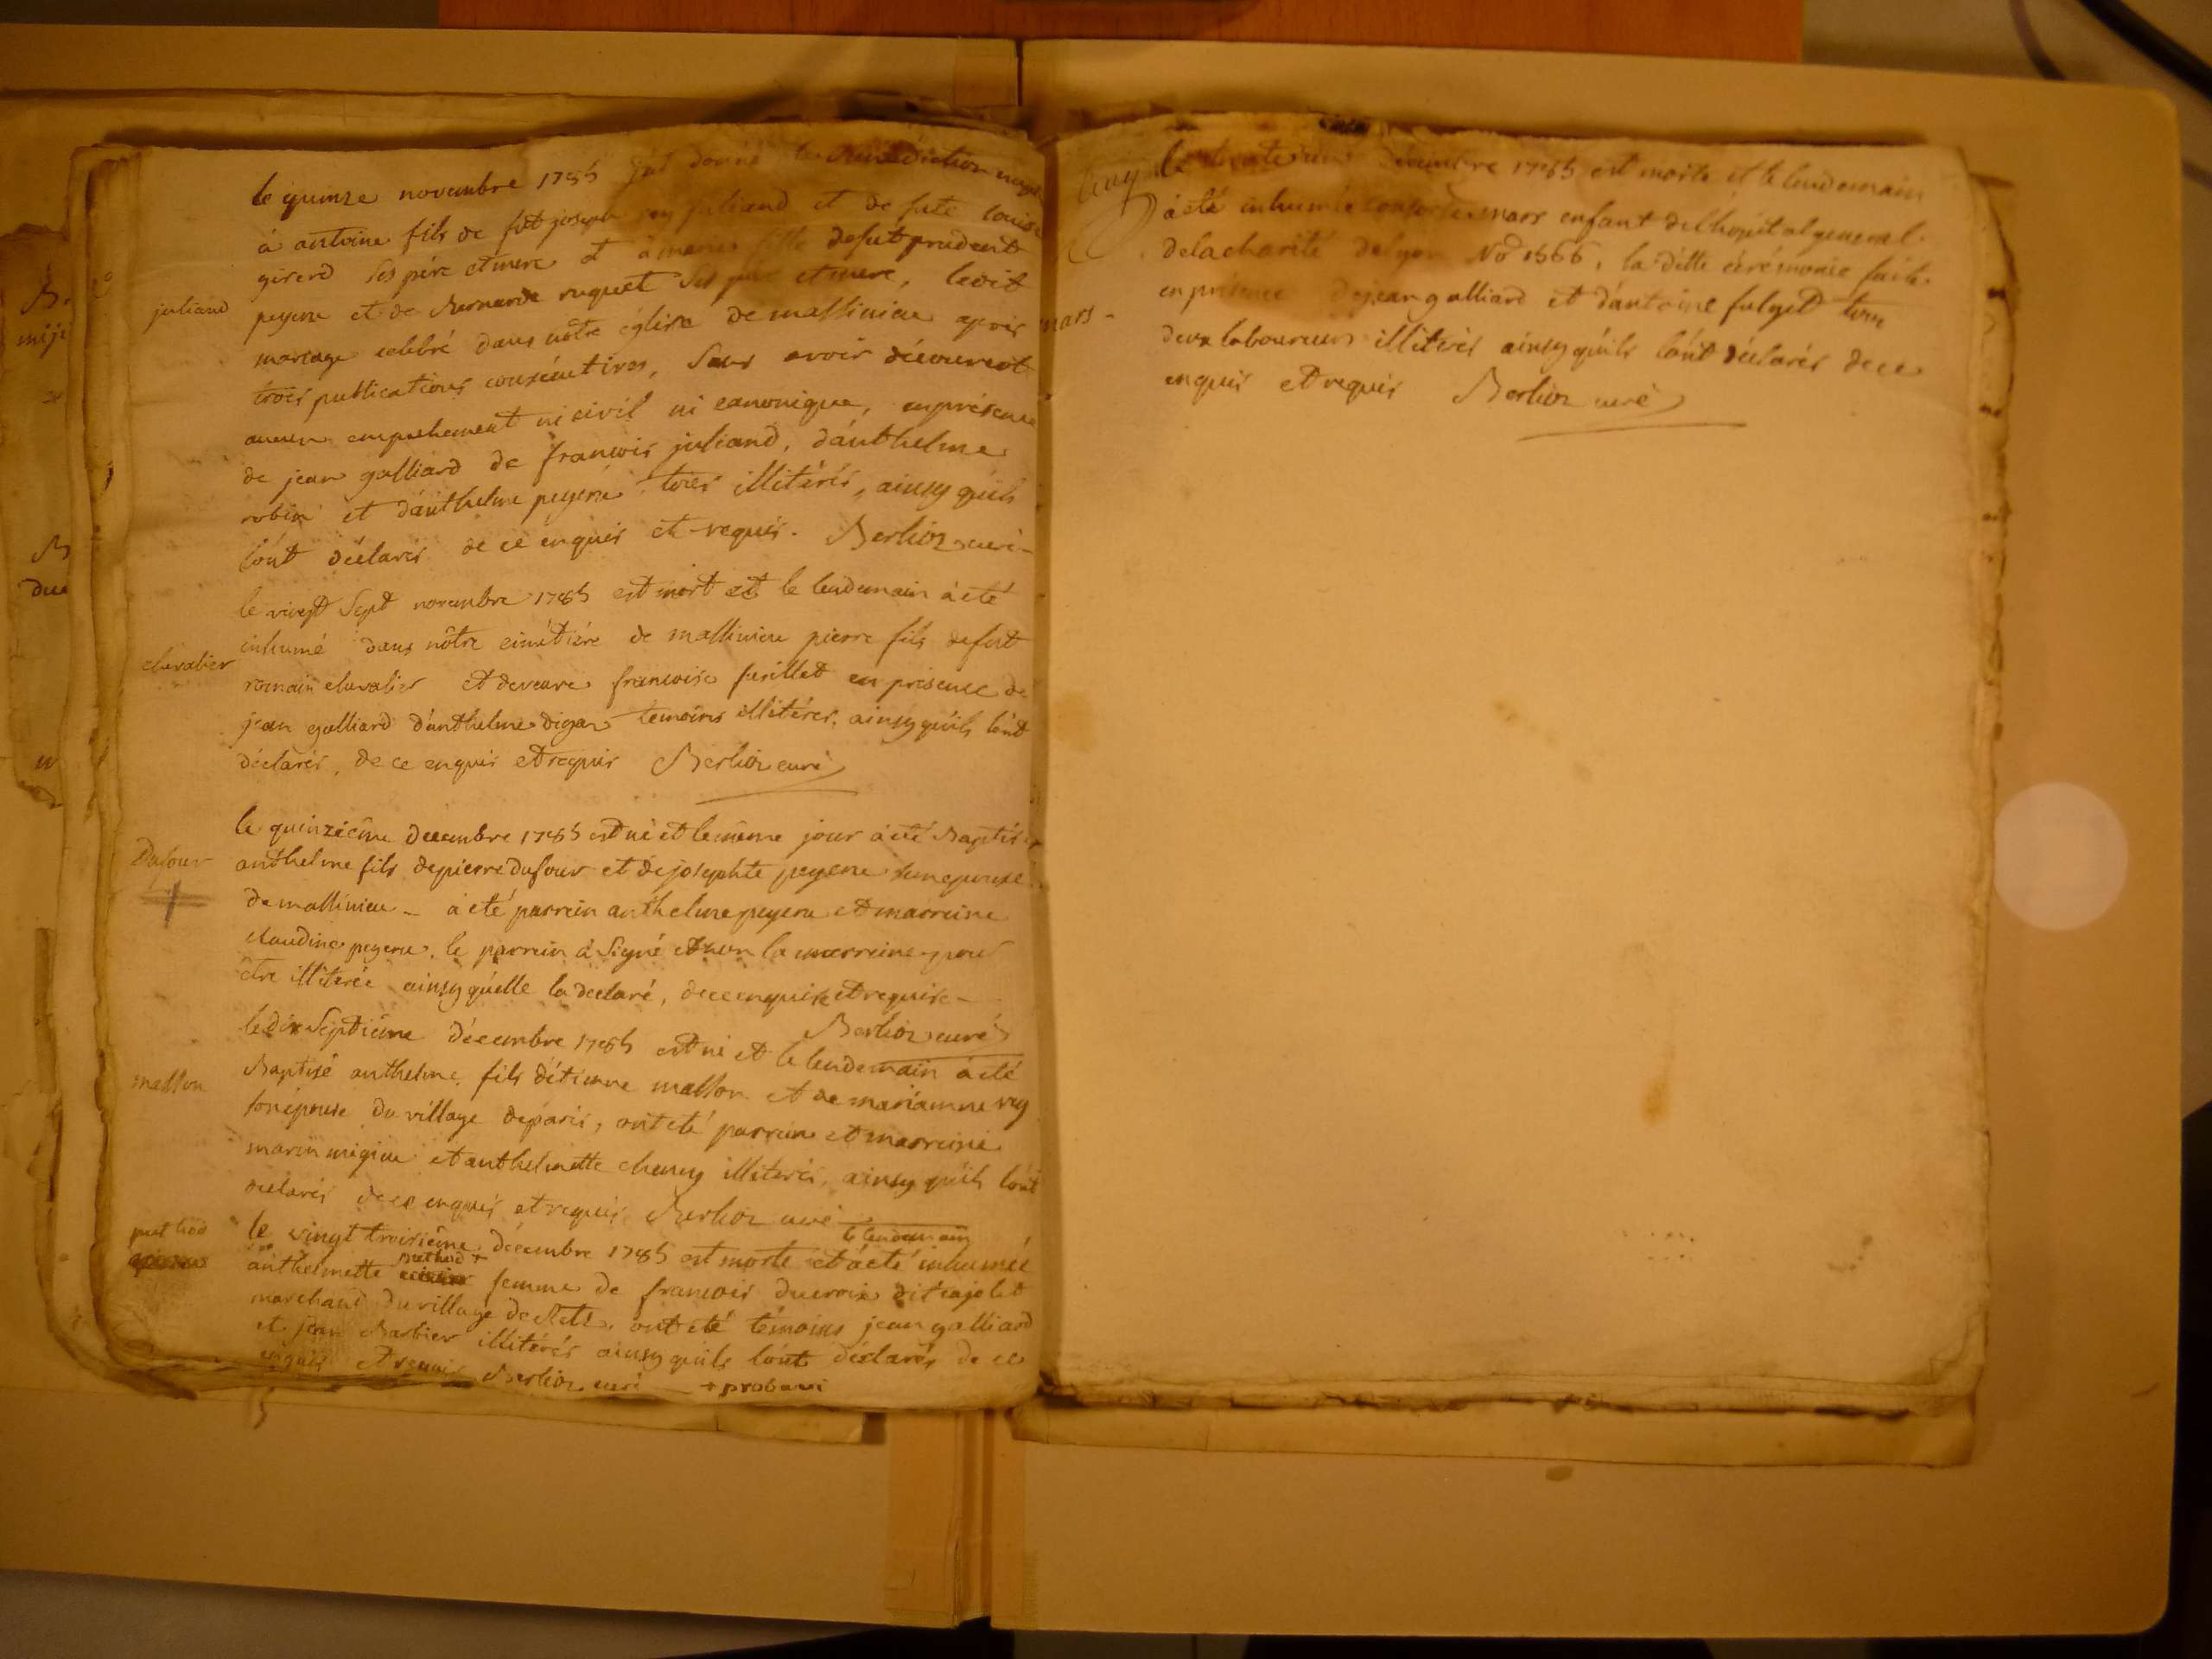 le quinze novembre 1785 j'ai donné la Bénédiction
à antoine fils de fût joseph juliand et de fute louise
girerd ses père et mere et à marie fille defut prudent
juliand
peyere et de Bernarde ruquet ses père et mere, ledit
mariage celebré dans nôtre église de massinieu après
trois publications consécutives, sans avoir découvert
aucun empeschement ni civil ni canonique, en présence
de jean galliard de françois juliand, d'anthelme
robin et d'anthelme peyere illitérés, ainsy qu'ils
l'ont déclarés de ce enquis et requis. Berlioz curé
le vingt sept novembre 1785 est mort et le lendemain à eté
inhumé dans nôtre cimétiére de massinieu pierre fils defut
chevalier
romain chevalier et de veuve francoise furillet en présence de
jean galliard d'anthelme digar temoins illitérés, ainsy qu'ils l'ont
déclarés, de ce enquis et requis Berlioz curé
le quinziême decembre 1785 est né et le même jour à eté Baptisé
Dufour
anthelme fils de pierre dufour et de josephte peyere son epouse
de massinieu - à eté parrein anthelme peyere et marreine
claudine peyere, le parrein à signé et non la marreine pour
être illiterée ainsy qu'elle la declaré, de ce enquise et requise -
Berlioz curé
le dix septiême décembre 1785 est né et le lendemain à eté
masson
Baptisé anthelme, fils d'étienne masson et de mariamne rey
son epouse du village de paris, ont eté parrein et marreine
marin migieu et anthelmette chaney illiterés, ainsy qu'ils l'ont
déclarés de ce enquis et requis Berlioz curé
le lendemain
puthod
le vingt troisiême décembre 1785 est morte et à eté inhumée
puthod +
anthelmette femme de francois ducroix dit cajolet
marchand du village de ont eté témoins jean galliard
et jean Barbier illitérés ainsy qu'ils l'ont déclarés de ce
enquis et requis Berlioz curé + probavi
le décembre 1785 est morte et le lendemain
à été inhumée mars enfant de l'hopital general
de la charité de lyon No 1566, la ditte cérémonie faite
mars -
en présence de jean galliard et d'antoine fulget tous
deux laboureurs illiterés ainsy qu'ils l'ont déclarés de ce
enquis et requis Berlioz curé